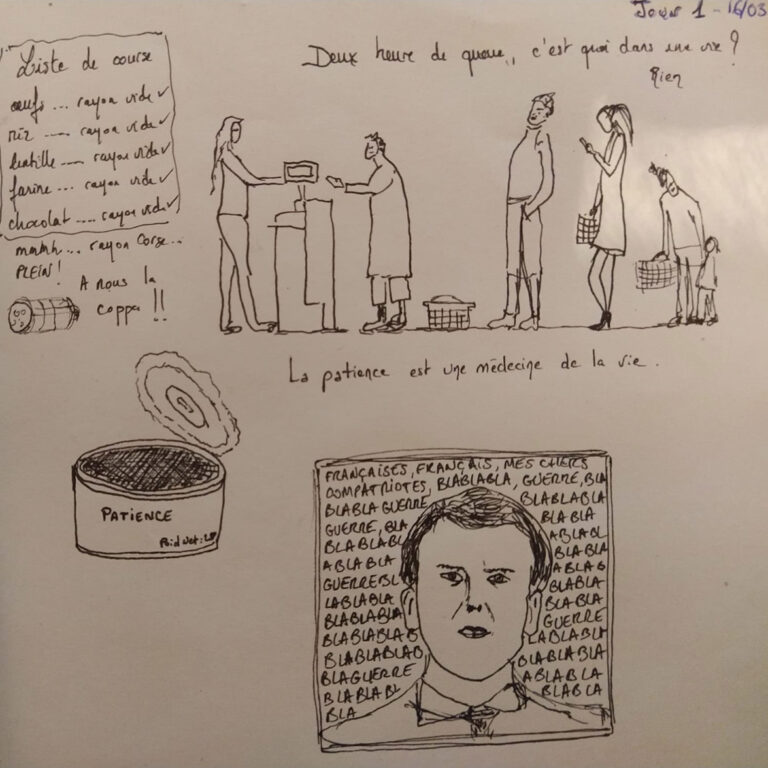 Jour 1 - 16/03
Liste de course
œufs ... rayon vide ✓
riz ..... rayon vide ✓
lentille ..... rayon vide ✓
farine ... rayon vide ✓
chocolat ..... rayon vide ✓
mmhh... rayon Corse...
PLEIN !
A nous la
coppa !!
Deux heure de queue,, c'est quoi dans une vie ?
Rien
La patience est une médecine de la vie.
PATIENCE
Poid Net :
FRANÇAISES, FRANÇAIS, MES CHERS
COMPATRIOTES, BLABLABLA, GUERRE, BLA
BLABLA GUERRE BLABLABLA
GUERRE, BLA BLA BLA
BLABLABL ABLABL
ABLABLA BLABLA
GUERREBL ABLAB
LABLABLA BLABLA
BLABLABLA BLABLA
BLABLABLAB GUERRE
BLABLABLAB LABLABLA
BLAGUERRE BLABLABLA
BLABLABL ABLABLA
BLA BLABLA